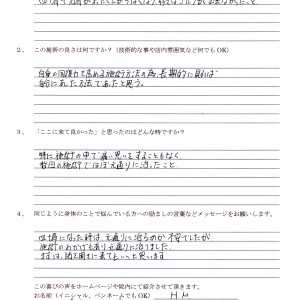 2. この施術の良さは何ですか？（技術的な事や店内雰囲気など何でもOK）
自身の回復力を高める施術方法の為、長期的に見れば
自分にあった方法であったと思う。
3. 「ここに来て良かった」と思ったのはどんな時ですか？
特に施術の中で痛い思いをすることもなく
数回の施術でほぼ元通りに治ったこと。
4. 同じように身体のことで悩んでいる方への励ましの言葉などメッセージをお願いします。
になった時は、元通りに治るのか不安でしたが
施術のおかげもあり元通りになりました。
まずは、話を聞きに来てもいいと思います
この喜びの声をホームページや院内にて紹介させて頂きます。
お名前（イニシャル、ペンネームでもOK） H M